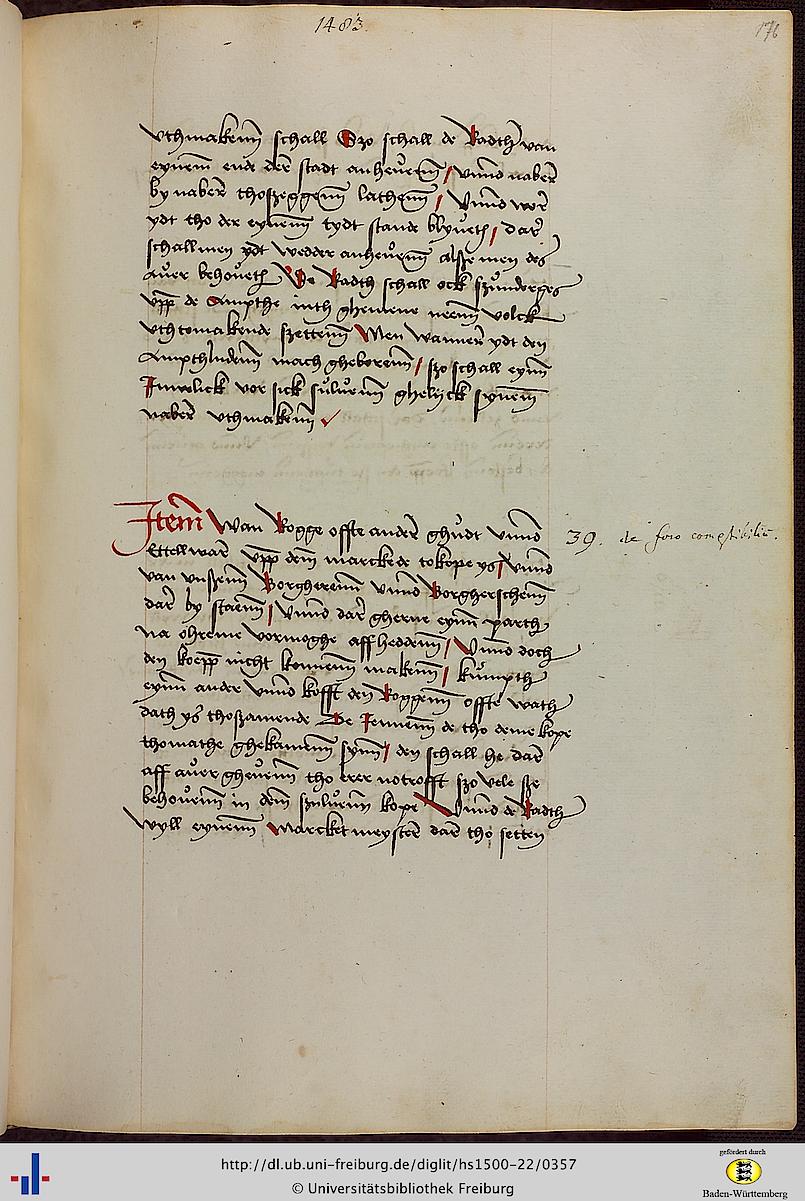 1483
176
vthmakenn schall Szo schall de Radth van
eynem ende der stadt anheuen / vnnd naber
by naber thoszeggenn lathenn / Vnnd wor
ydt tho der eynenn tydt stande blyueth / dar
schall men ydt wedder anheuenn alsze men des
auer behoueth De Radth schall ock szunderges
vpp de Ampthe inth ghemene neenn volck
vthtomakende szettenn Men wanner ydt den
Ampthludenn mach gheborenn / szo schall eynn
Juwelick vor sick suluenn ghelyck synenn
naber vthmakenn
Item Wan Rogge offte ander ghudt vnnd
Ettellwar vpp dem marckede tokope ys / vnnd
van vnszenn Borgherenn vnnd Borgherschenn
dar by staenn / vnnd dar gherne eynn parth
na ohreme vormoghe aff heddenn / Vnnd doch
den koepp nicht konnenn makenn / kumpth
eynn ander vnnd kofft den Roggenn offte wath
dath ys thoszamende De Jennenn de tho deme kope
thomathe ghekamenn synn / den schall he dar
aff auer gheuenn tho erer notrofft szo vele sze
behouenn in dem szuluenn kope Vnnd de Radth
wyll eynenn Marcket meyster dar tho setten
39. de foro comestibilium.
http://dl.ub.uni-freiburg.de/diglit/hs1500-22/0357
© Universitätsbibliothek Freiburg
gefördert durch
Baden-Württemberg